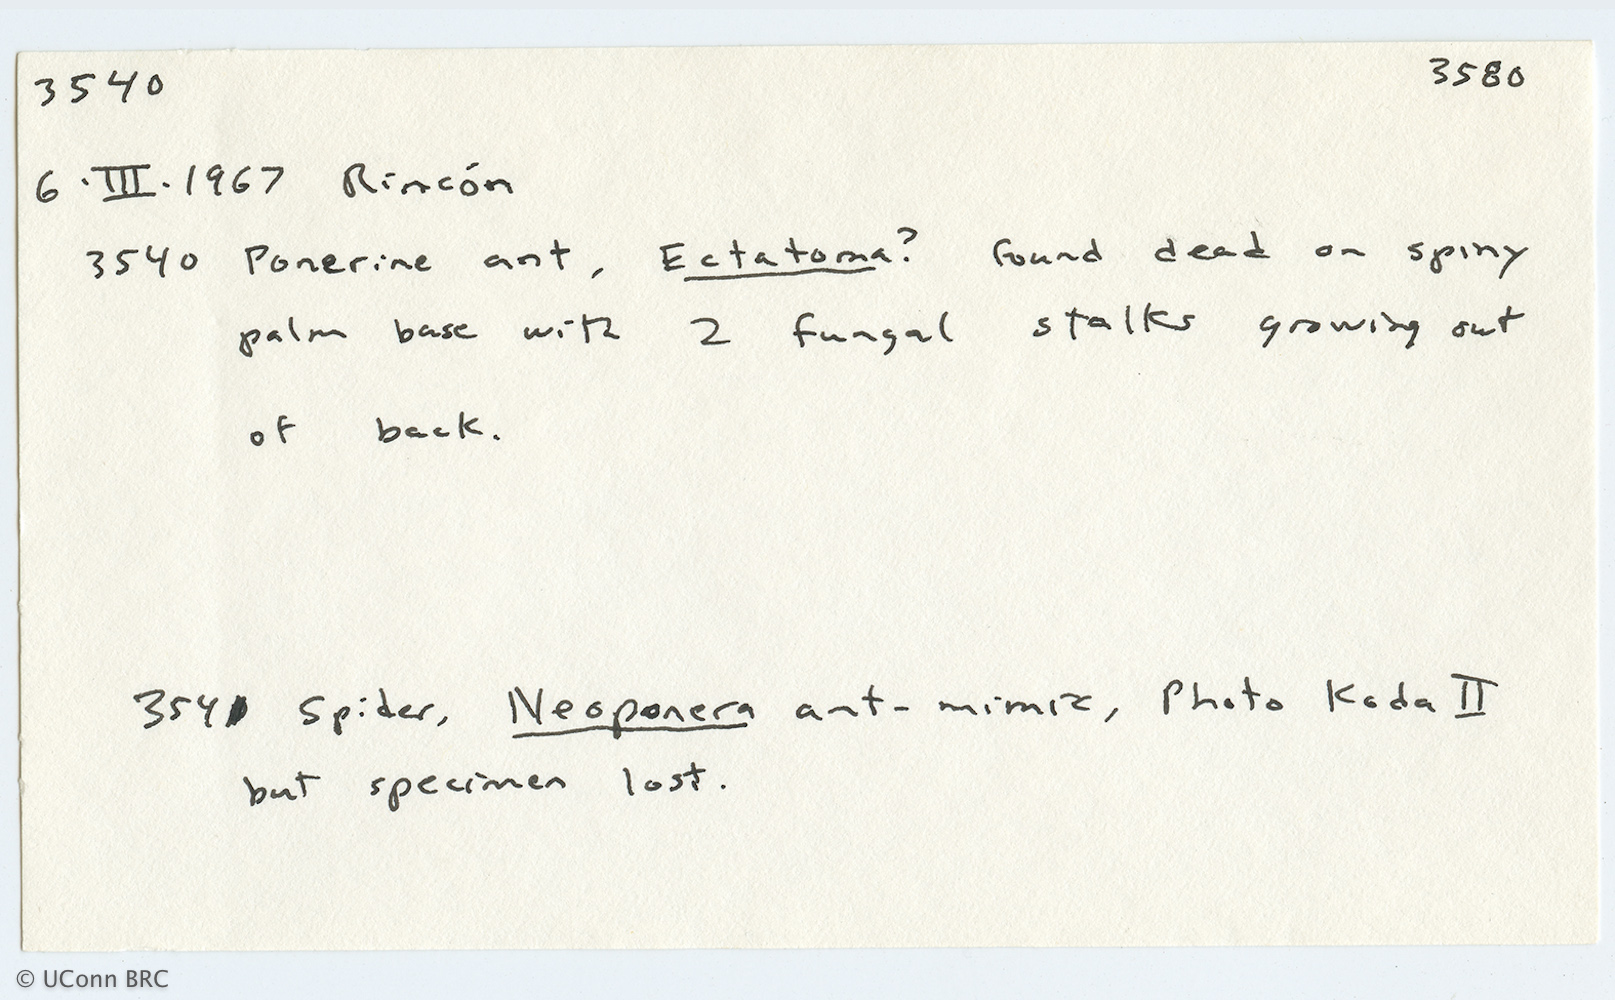 3540 3580
6.III.1967 Rincón
3540 Ponerine ant, Ectatoma? Found dead on spiny
palm base with 2 fungal stalks growing out
of back.
3541 Spider, Neoponera ant-mimic, Photo Koda II
but specimen lost.
© UConn BRC